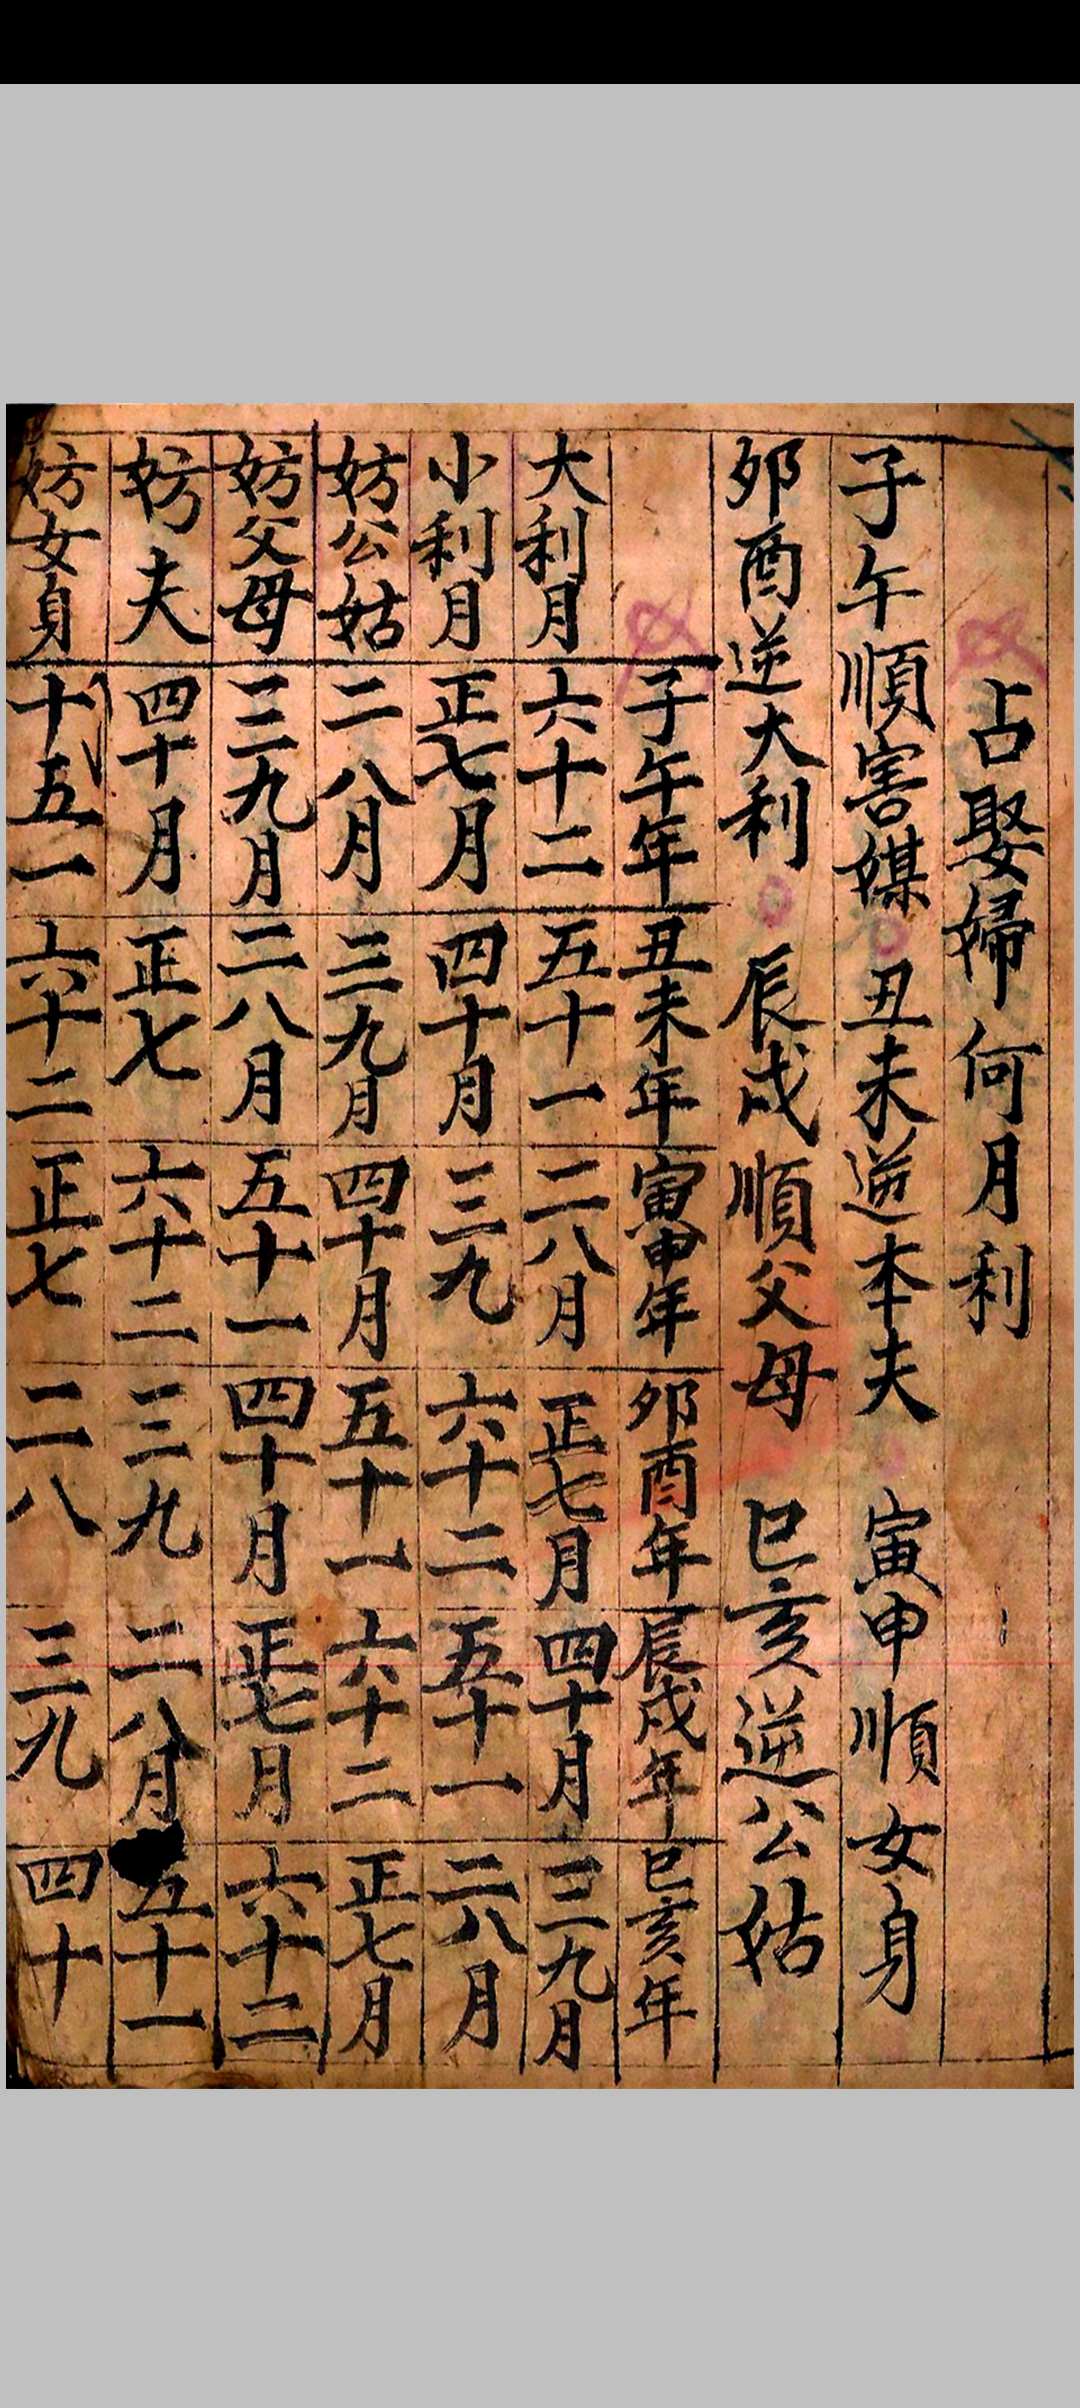 占娶婦何月利
子午順害媒 丑未逆本夫 寅申順女身
夘酉逆大利 辰戌順父母 巳亥逆公姑
子午年 丑未年 寅申年 夘酉年 辰戌年 巳亥年
大利月 六十二 五十一 二八月 正七月 四十月 三九月
小利月 正七月 四十月 三九 六十二 五十一 二八月
妨公姑 二八月 三九月 四十月 五十一 六十二 正七月
妨父母 三九月 二八月 五十一 四十月 正七月 六十二
妨夫 四十月 正七 六十二 三九 二八月 五十一
妨女身 十五一 六十二 正七 二八 三九 四十